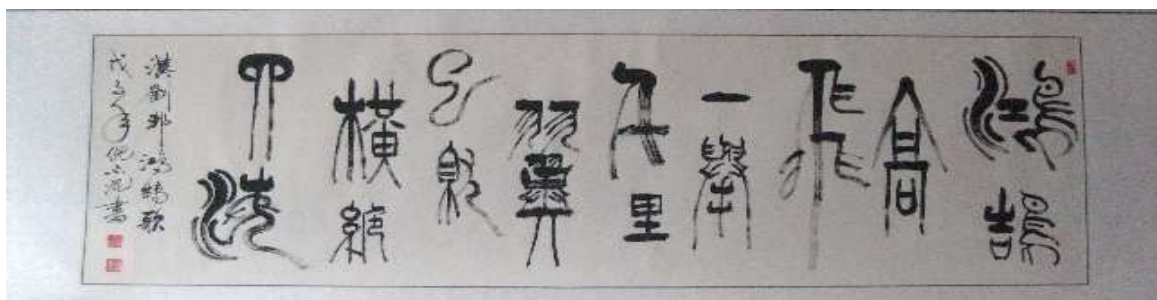 鴻鵠
高
飛
一舉
千里
羽翼
已就
橫絕
四海
漢劉邦鴻鵠歌
戊子年倪書